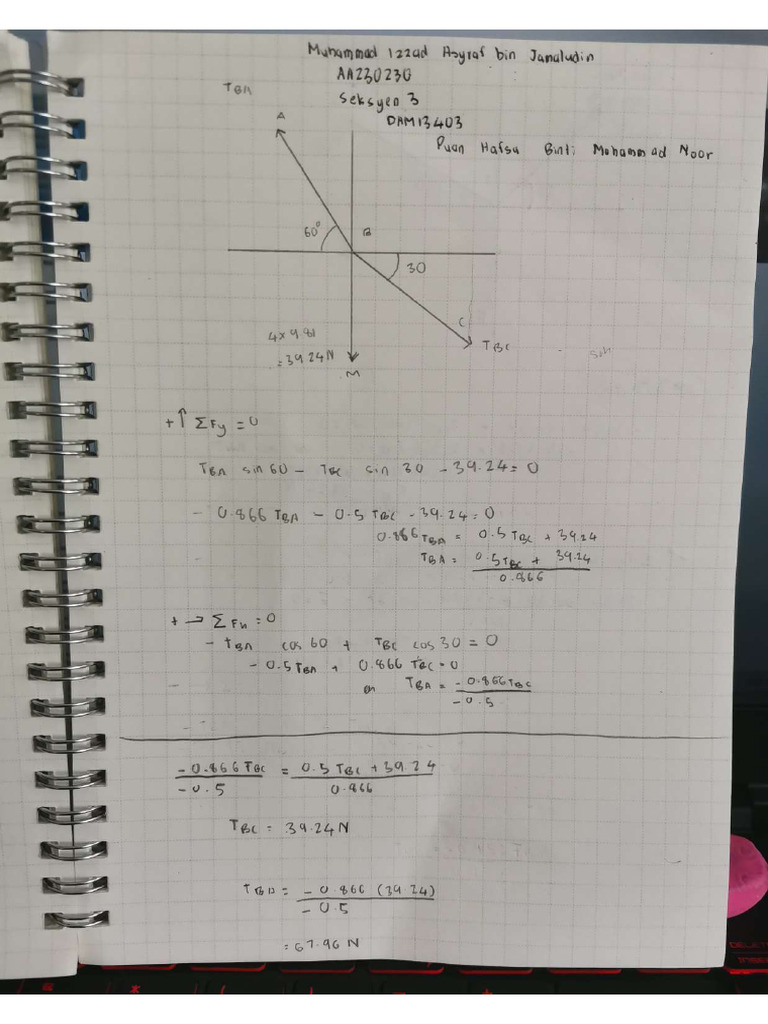 Muhammad Izzad Asyraf bin Jamaludin
AA230230
Seksyen 3
DAM13403
Puan Hafsa Binti Mohammad Noor
TBA
A
60°
B
30
C
TBC
4 x 9.81
= 39.24 N
M
sin
+ ↑ ΣFy = 0
TBA sin 60 - TBC sin 30 - 39.24 = 0
- 0.866 TBA - 0.5 TBC - 39.24 = 0
0.866 TBA = 0.5 TBC + 39.24
TBA = 0.5 TBC + 39.24
0.866
+ → ΣFx = 0
- TBA cos 60 + TBC cos 30 = 0
- 0.5 TBA + 0.866 TBC = 0
TBA = - 0.866 TBC
- 0.5
- 0.866 TBC = 0.5 TBC + 39.24
- 0.5 0.866
TBC = 39.24 N
TBA = - 0.866 (39.24)
- 0.5
= 67.96 N
DELETE